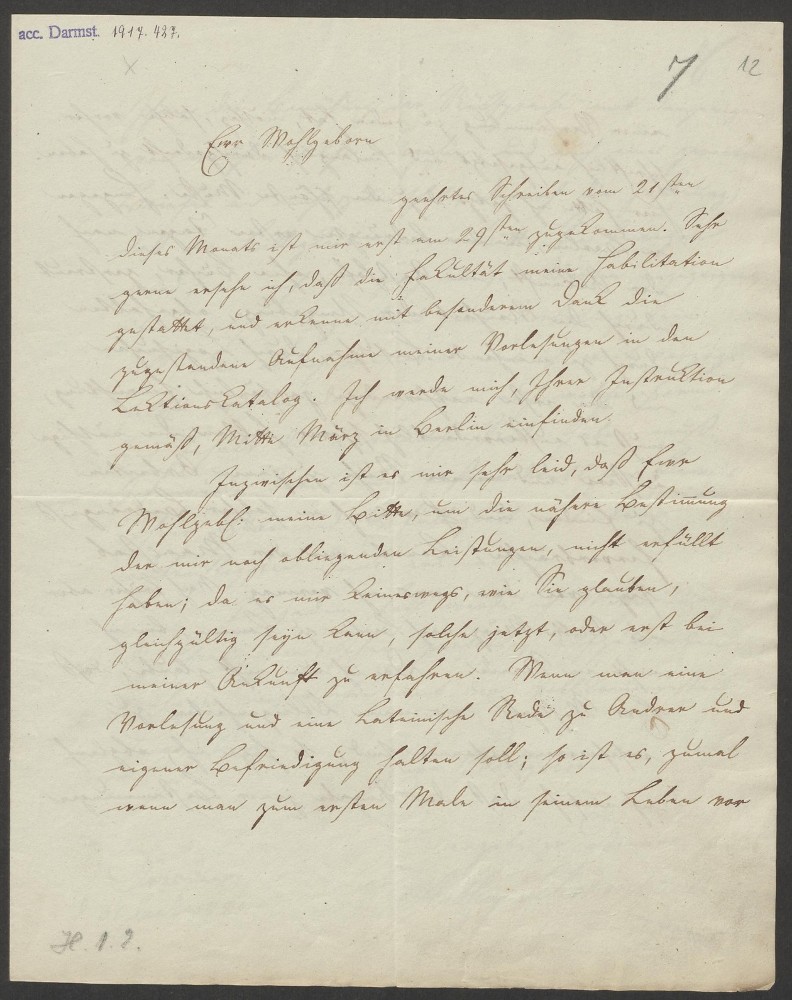 acc. Darmst. 1917. 427.
7
12
Ewr Wohlgeborn
geehrtes Schreiben vom 21sten
dieses Monats ist mir erst am 29sten zugekommen. Sehr
gerne ersehe ich, daß die Fakultät meine Habilitation
gestattet, und erkenne mit besonderem Dank die
zugestandene Aufnahme meiner Vorlesungen in den
Lektionskatalog. Ich werde mich, Ihrer Instruktion
gemäß, Mitte März in Berlin einfinden.
Inzwischen ist es mir sehr leid, daß Ewr
Wohlgeb: meine Bitte, um die nähere Bestimmung
der mir noch obliegenden Leistungen, nicht erfüllt
haben; da es mir keineswegs, wie Sie glauben,
gleichgültig seyn kann, solche jetzt, oder erst bei
meiner Ankunft zu erfahren. Wenn man eine
Vorlesung und eine Lateinische Rede zu Andrer und
eigener Befriedigung halten soll; so ist es, zumal
wenn man zum ersten Male in seinem Leben vor